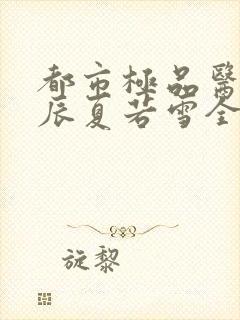 都市極品醫
辰夏若雪全
旋黎